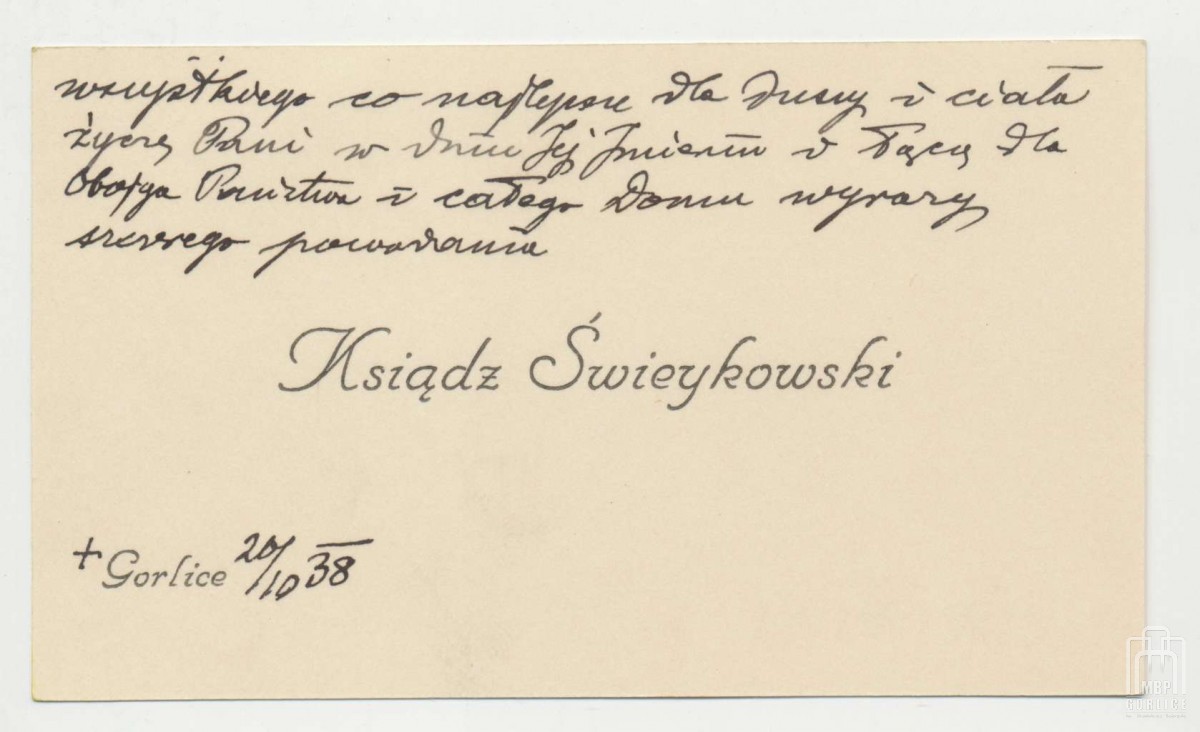 wszystkiego co najlepsze dla duszy i ciała
życzę Pani w dniu Jej Imienin i łączę dla
Obojga Państwa i całego Domu wyrazy
szczerego poważania
Ksiądz Świeykowski
+ Gorlice 20/10 38
MBP
GORLICE